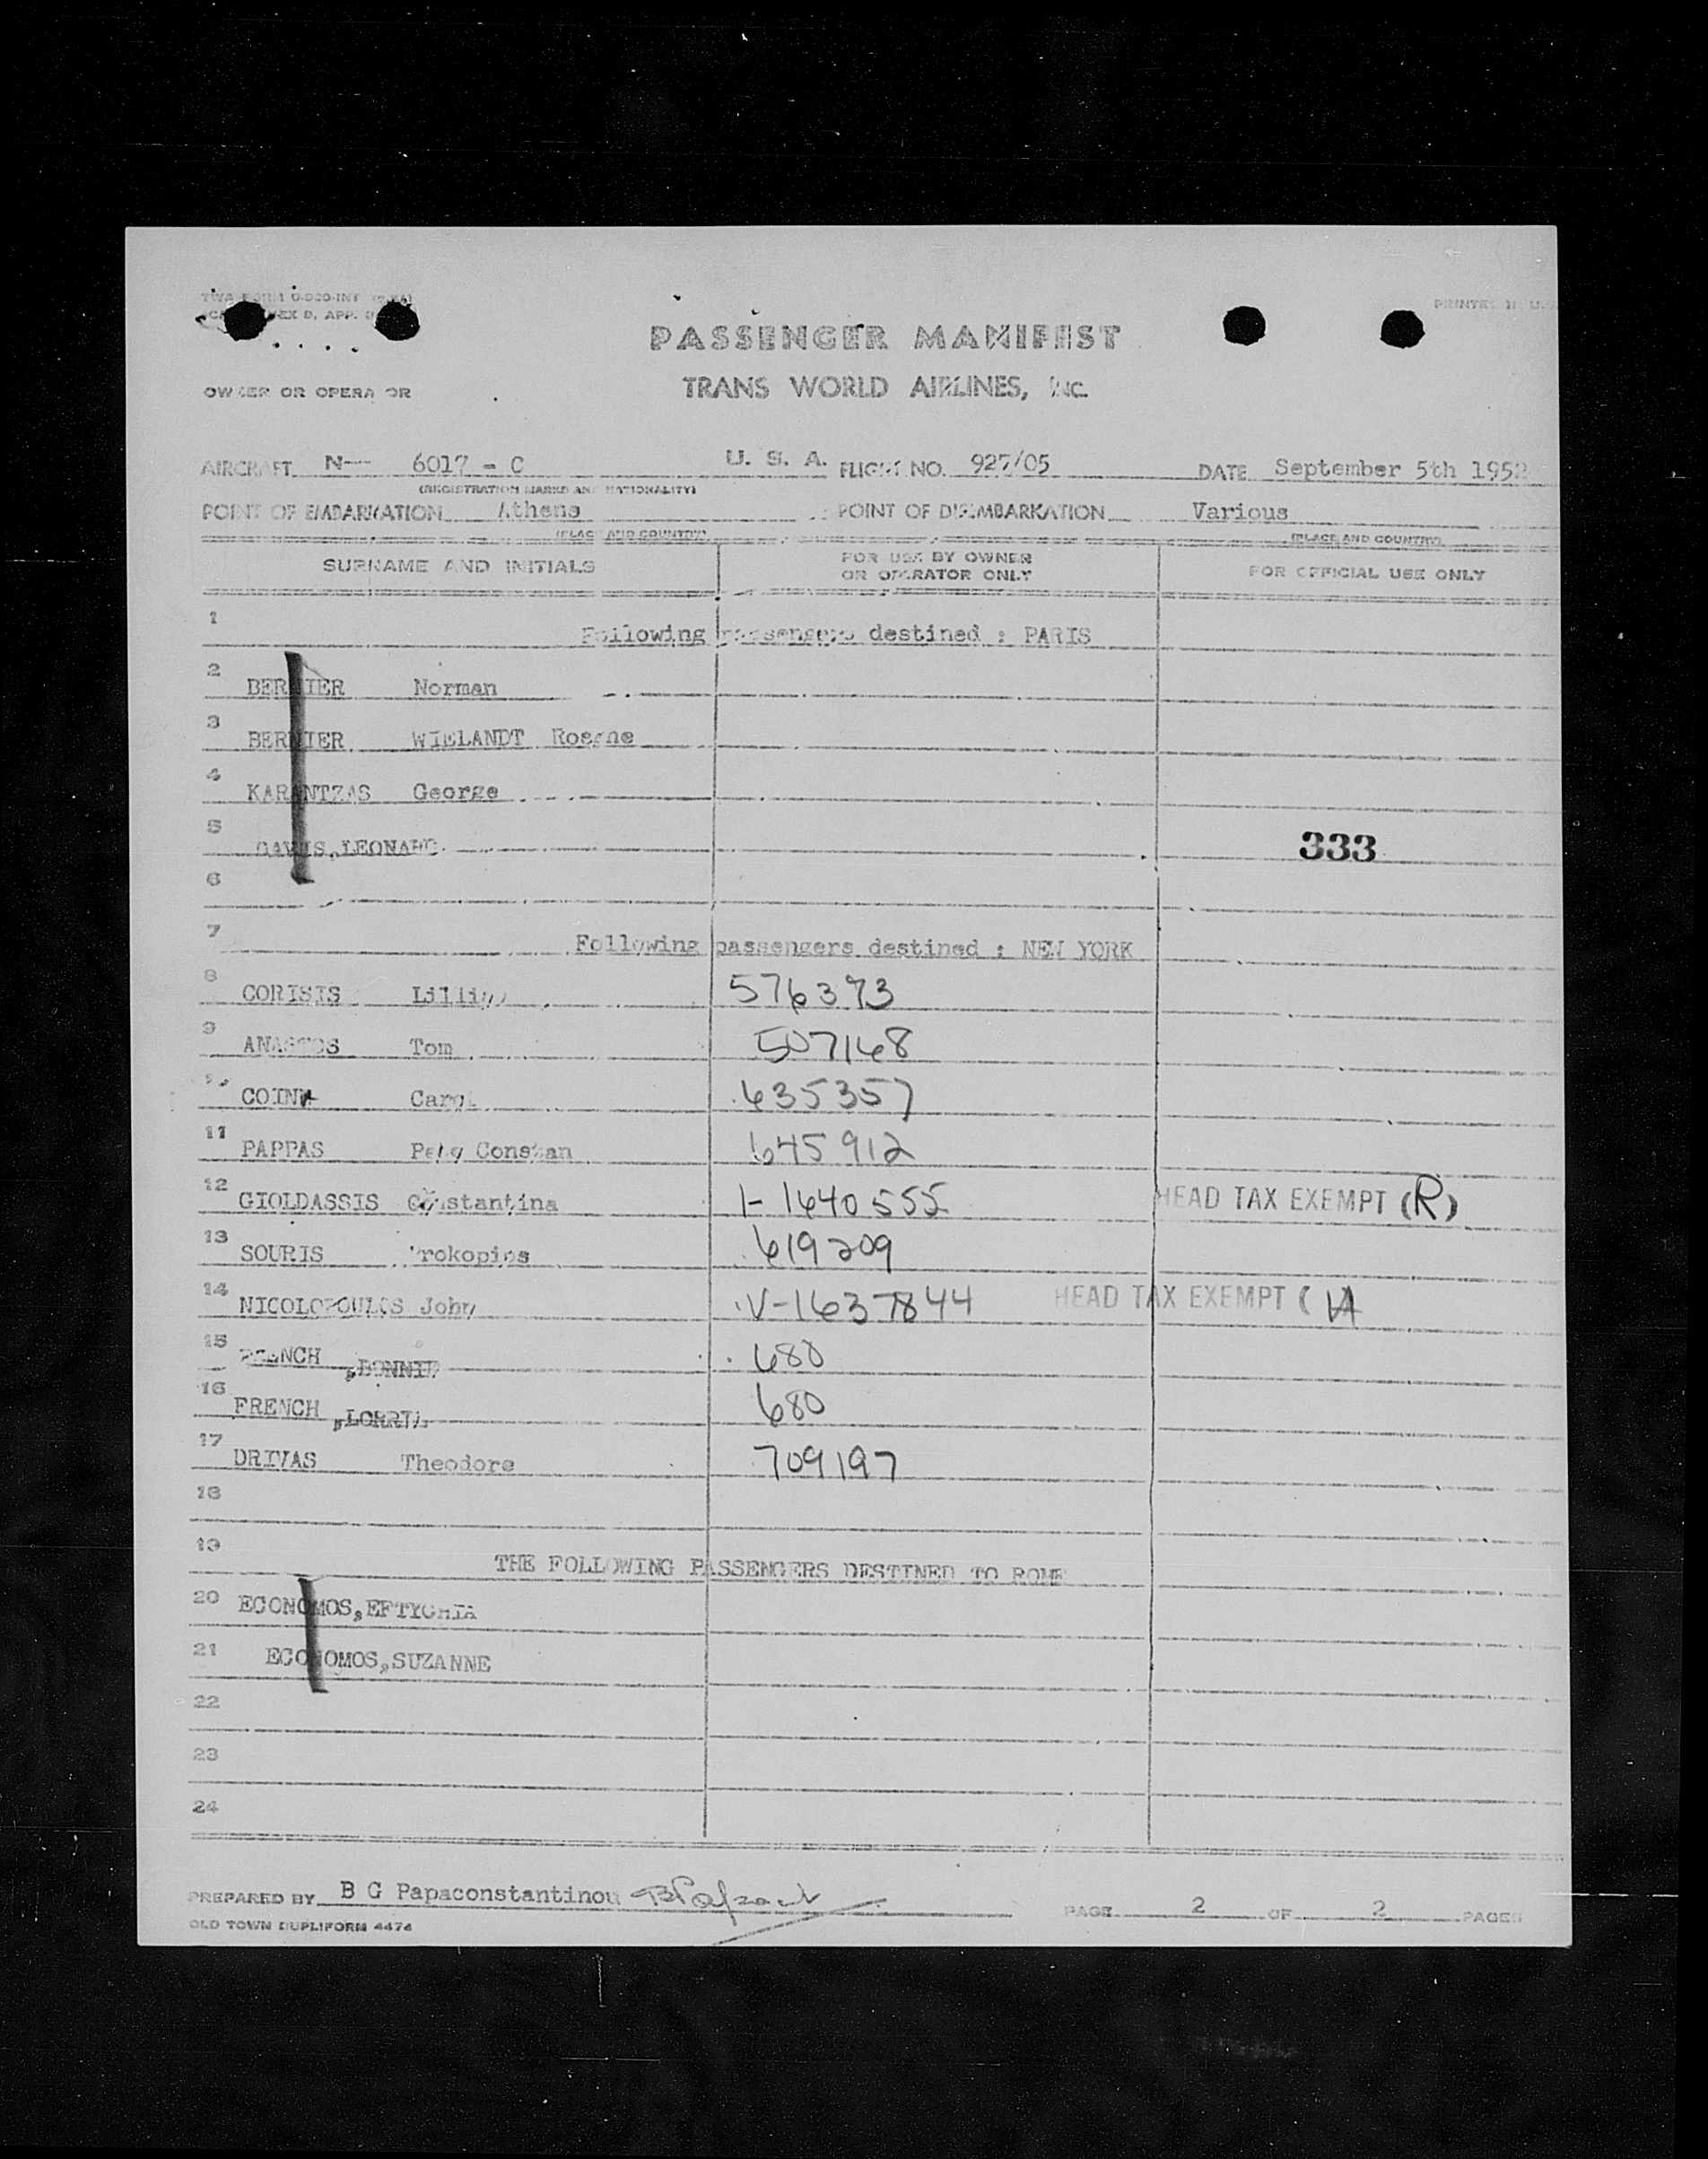 PASSENGER MANIFEST
TRANS WORLD AIRLINES, INC.
OWNER OR OPERATOR
AIRCRAFT N-- 6017 - C U. S. A. FLIGHT NO. 927/05 DATE September 5th 1952
(REGISTRATION MARKS AND NATIONALITY)
POINT OF EMBARKATION Athens POINT OF DISEMBARKATION Various
(PLACE AND COUNTRY) (PLACE AND COUNTRY)
SURNAME AND INITIALS FOR USE BY OWNER OR OPERATOR ONLY FOR OFFICIAL USE ONLY
1 Following passengers destined : PARIS
2 BERNIER Norman
3 BERNIER WIELANDT
4 KARANTZAS George
5 LEONARD 333
6
7 Following passengers destined : NEW YORK
8 CORISIS 576393
9 ANASTOS Tom 507168
COINA Carol 635357
11 PAPPAS Constan 645912
12 GIOLDASSIS Constantina I-1640555 HEAD TAX EXEMPT (R)
13 SOURIS Prokopios 619209
14 NICOLOPOULOS John V-1637844 HEAD TAX EXEMPT (
15 FRENCH ,BONNIE 680
16 FRENCH 680
17 DRIVAS Theodore 709197
18
19 THE FOLLOWING PASSENGERS DESTINED TO ROME
20 ECONOMOS,EFTYCHIA
21 ECONOMOS,SUZANNE
22
23
24
PREPARED BY B G Papaconstantinou PAGE 2 OF 2 PAGES
OLD TOWN DUPLIFORM 4474